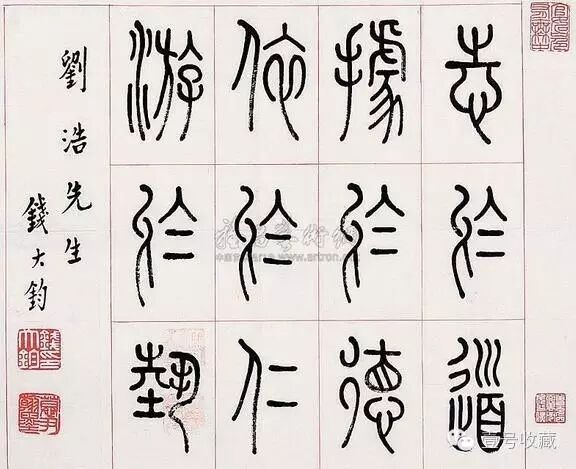 志於道
據於德
依於仁
游於埶
劉浩先生
錢大鈞
www.artron.net
壹号收藏